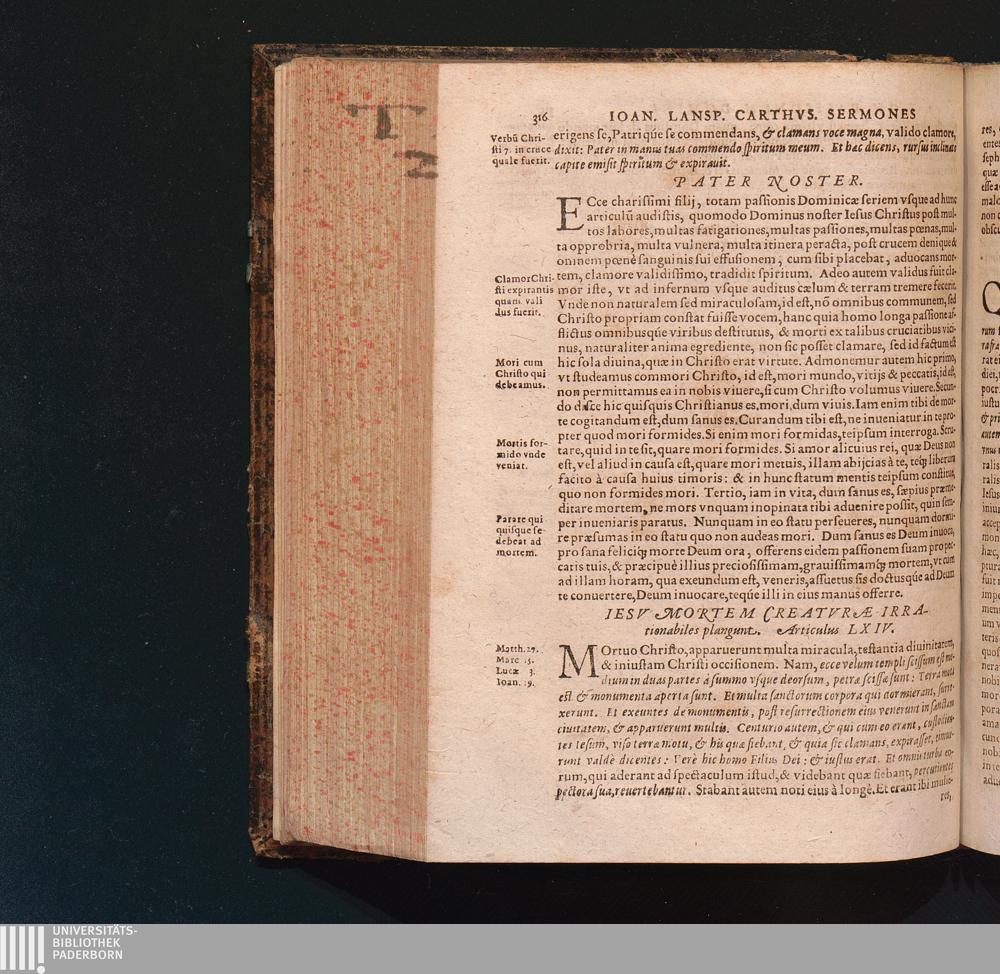 T
316 IOAN. LANSP. CARTHVS. SERMONES
Verbū Chri-
sti 7. in cruce
quale fuerit.
erigens se, Patriq́ue se commendans, & clamans voce magna, valido clamore,
dixit: Pater in manus tuas commendo spiritum meum. Et hæc dicens, rursus inclinato
capite emisit spiritum & expirauit.
PATER NOSTER.
ECce charissimi filij, totam passionis Dominicæ seriem vsque ad hunc
articulū audistis, quomodo Dominus noster Iesus Christus post mul-
tos labores, multas fatigationes, multas passiones, multas pœnas, mul-
ta opprobria, multa vulnera, multa itinera peracta, post crucem denique &
omnem pœnè sanguinis sui effusionem, cum sibi placebat, aduocans mor-
Clamor Chri-
sti expirantis
quam vali
dus fuerit.
tem, clamore validissimo, tradidit spiritum. Adeo autem validus fuit cla-
mor iste, vt ad infernum vsque auditus cælum & terram tremere fecerit.
Vnde non naturalem sed miraculosam, id est, nō omnibus communem, sed
Christo propriam constat fuisse vocem, hanc quia homo longa passione af-
flictus omnibusq́ue viribus destitutus, & morti ex talibus cruciatibus vici-
nus, naturaliter anima egrediente, non sic posset clamare, sed id factum est
Mori cum
Christo qui
debeamus.
hic sola diuina, quæ in Christo erat virtute. Admonemur autem hic primo,
vt studeamus commori Christo, id est, mori mundo, vitijs & peccatis, id est,
non permittamus ea in nobis viuere, si cum Christo volumus viuere. Secun-
do disce hic quisquis Christianus es, mori, dum viuis. Iam enim tibi de mor-
te cogitandum est, dum sanus es. Curandum tibi est, ne inueniatur in te pro-
pter quod mori formides. Si enim mori formidas, teipsum interroga. Scru-
Mortis for-
mido vnde
veniat.
tare, quid in te sit, quare mori formides. Si amor alicuius rei, quæ Deus non
est, vel aliud in causa est, quare mori metuis, illam abijcias à te, teq́; liberum
facito à causa huius timoris: & in hunc statum mentis teipsum constitue,
quo non formides mori. Tertio, iam in vita, dum sanus es, sæpius præme-
ditare mortem, ne mors vnquam inopinata tibi aduenire possit, quin sem-
Parate qui
quisque se
debeat ad
mortem.
per inueniaris paratus. Nunquam in eo statu perseueres, nunquam dormi-
re præsumas in eo statu quo non audeas mori. Dum sanus es Deum inuoca,
pro sana feliciq́; morte Deum ora, offerens eidem passionem suam pro pec-
catis tuis, & præcipuè illius preciosissimam, grauissimamq́; mortem, vt cum
ad illam horam, qua exeundum est, veneris, assuetus sis doctusq́ue ad Deum
te conuertere, Deum inuocare, teq́ue illi in eius manus offerre.
IESV MORTEM CREATVRÆ IRRA-
tionabiles plangunt. Articulus LXIV.
Matth. 27.
Marc 15.
Lucæ 3.
Ioan. 19.
MOrtuo Christo, apparuerunt multa miracula, testantia diuinitatem,
& iniustam Christi occisionem. Nam, ecce velum templi scissum est me-
dium in duas partes à summo vsque deorsum, petræ scissæ sunt: Terra mota
est & monumenta aperta sunt. Et multa sanctorum corpora qui dormierant, surre-
xerunt. Et exeuntes de monumentis, post resurrectionem eius venerunt in sanctam
ciuitatem, & apparuerunt multis. Centurio autem, & qui cum eo erant, custodien-
tes Iesum, viso terræmotu, & his quæ fiebant, & quia sic clamans, expirasset, timue-
runt valdè dicentes: Verè hic homo Filius Dei: & iustus erat. Et omnis turba eo-
rum, qui aderant ad spectaculum istud, & videbant quæ fiebant, percutientes
pectora sua, reuertebantur. Stabant autem noti eius à longè. Et erant ibi mulie-
res,
UNIVERSITÄTS-
BIBLIOTHEK
PADERBORN